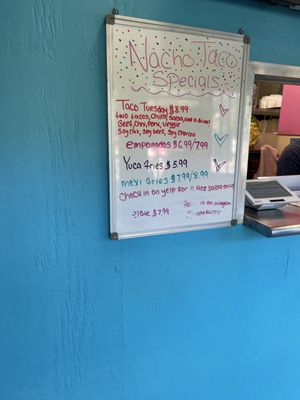 Nacho Taco
Specials
Taco Tuesday $8.99
two tacos, chips/ salsa, and a drink!
Beef, Chix, Pork, Veggie
Soy chix, Soy beef, Soy Chorizo
empanadas $6.99/7.99
Yuca fries $5.99
mexi fries $7.99/8.99
Check in on yelp for a 4oz salsa on us
$7.99
on instagram